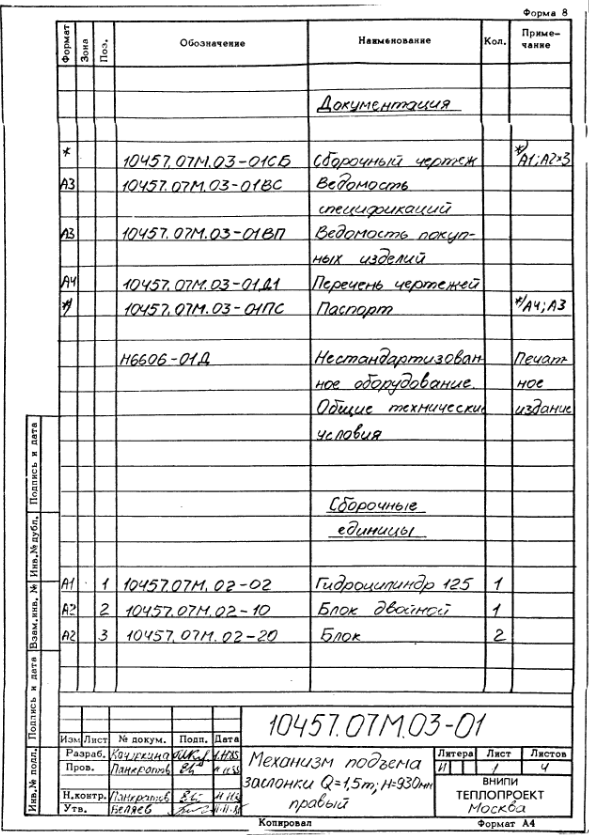 Форма 8
Формат Зона Поз. Обозначение Наименование Кол. Приме-
чание
Документация
* 10457.07М.03-01СБ Сборочный чертеж *) А1; А2×3
А3 10457.07М.03-01ВС Ведомость
спецификаций
А3 10457.07М.03-01ВП Ведомость покуп-
ных изделий
А4 10457.07М.03-01Д1 Перечень чертежей
*) 10457.07М.03-01ПС Паспорт *) А4; А3
Н6606-01Д Нестандартизован Печат-
ное оборудование. ное
Общие технические издание
условия
Сборочные
единицы
А1 1 10457.07М.02-02 Гидроцилиндр 125 1
А2 2 10457.07М.02-10 Блок двойной 1
А2 3 10457.07М.02-20 Блок 2
Подпись и дата
Инв.№ дубл.
Взам.инв. №
Подпись и дата
Инв.№ подл.
10457.07М.03-01
Изм Лист № докум. Подп. Дата
Разраб.
Пров. Панкратов
Н.контр. Панкратов
Утв. Беляев
Механизм подъема
заслонки Q=1,5т; Н=930мм
правый
Литера Лист Листов
И 1 4
ВНИПИ
ТЕПЛОПРОЕКТ
Москва
Копировал Формат А4